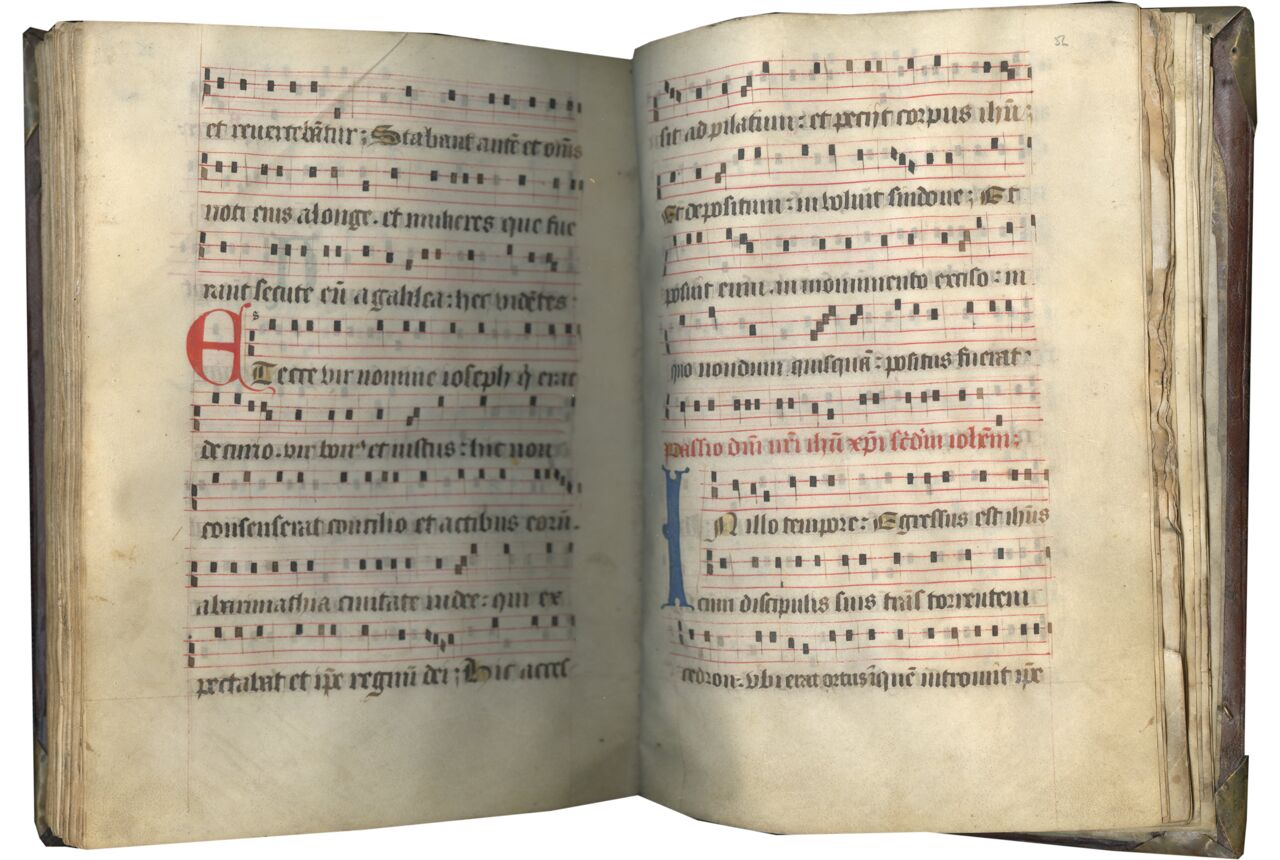 et reuertebãtur; Stabant autẽ et om̃s
noti eius alonge. et mulieres que fue
rant secute eũ a galilea: hec vidẽtes:
s
ET ecce vir nomine ioseph q̃ erat
decurio. vir bon⁹ et iustus: hic non
consenserat concilio et actibus eorũ.
abarimathia ciuitate iudee: qui ex
pectabat et ip̃e regnũ dei; Hic acces
52
sit ad pilatum: et pecijt corpus ihũ:
Et depositum: inuoluit sindone; Et
posuit eum. in monumento exciso: in
quo nondum quisquã: positus fuerat:
Passio dñi nr̃i ihũ xp̃i scd̃m ioh̃em:
IN illo tempore: Egressus est ihũs
cum discipulis suis trãs torrentem
cedron: vbi erat ortus ĩquẽ introiuit ip̃e